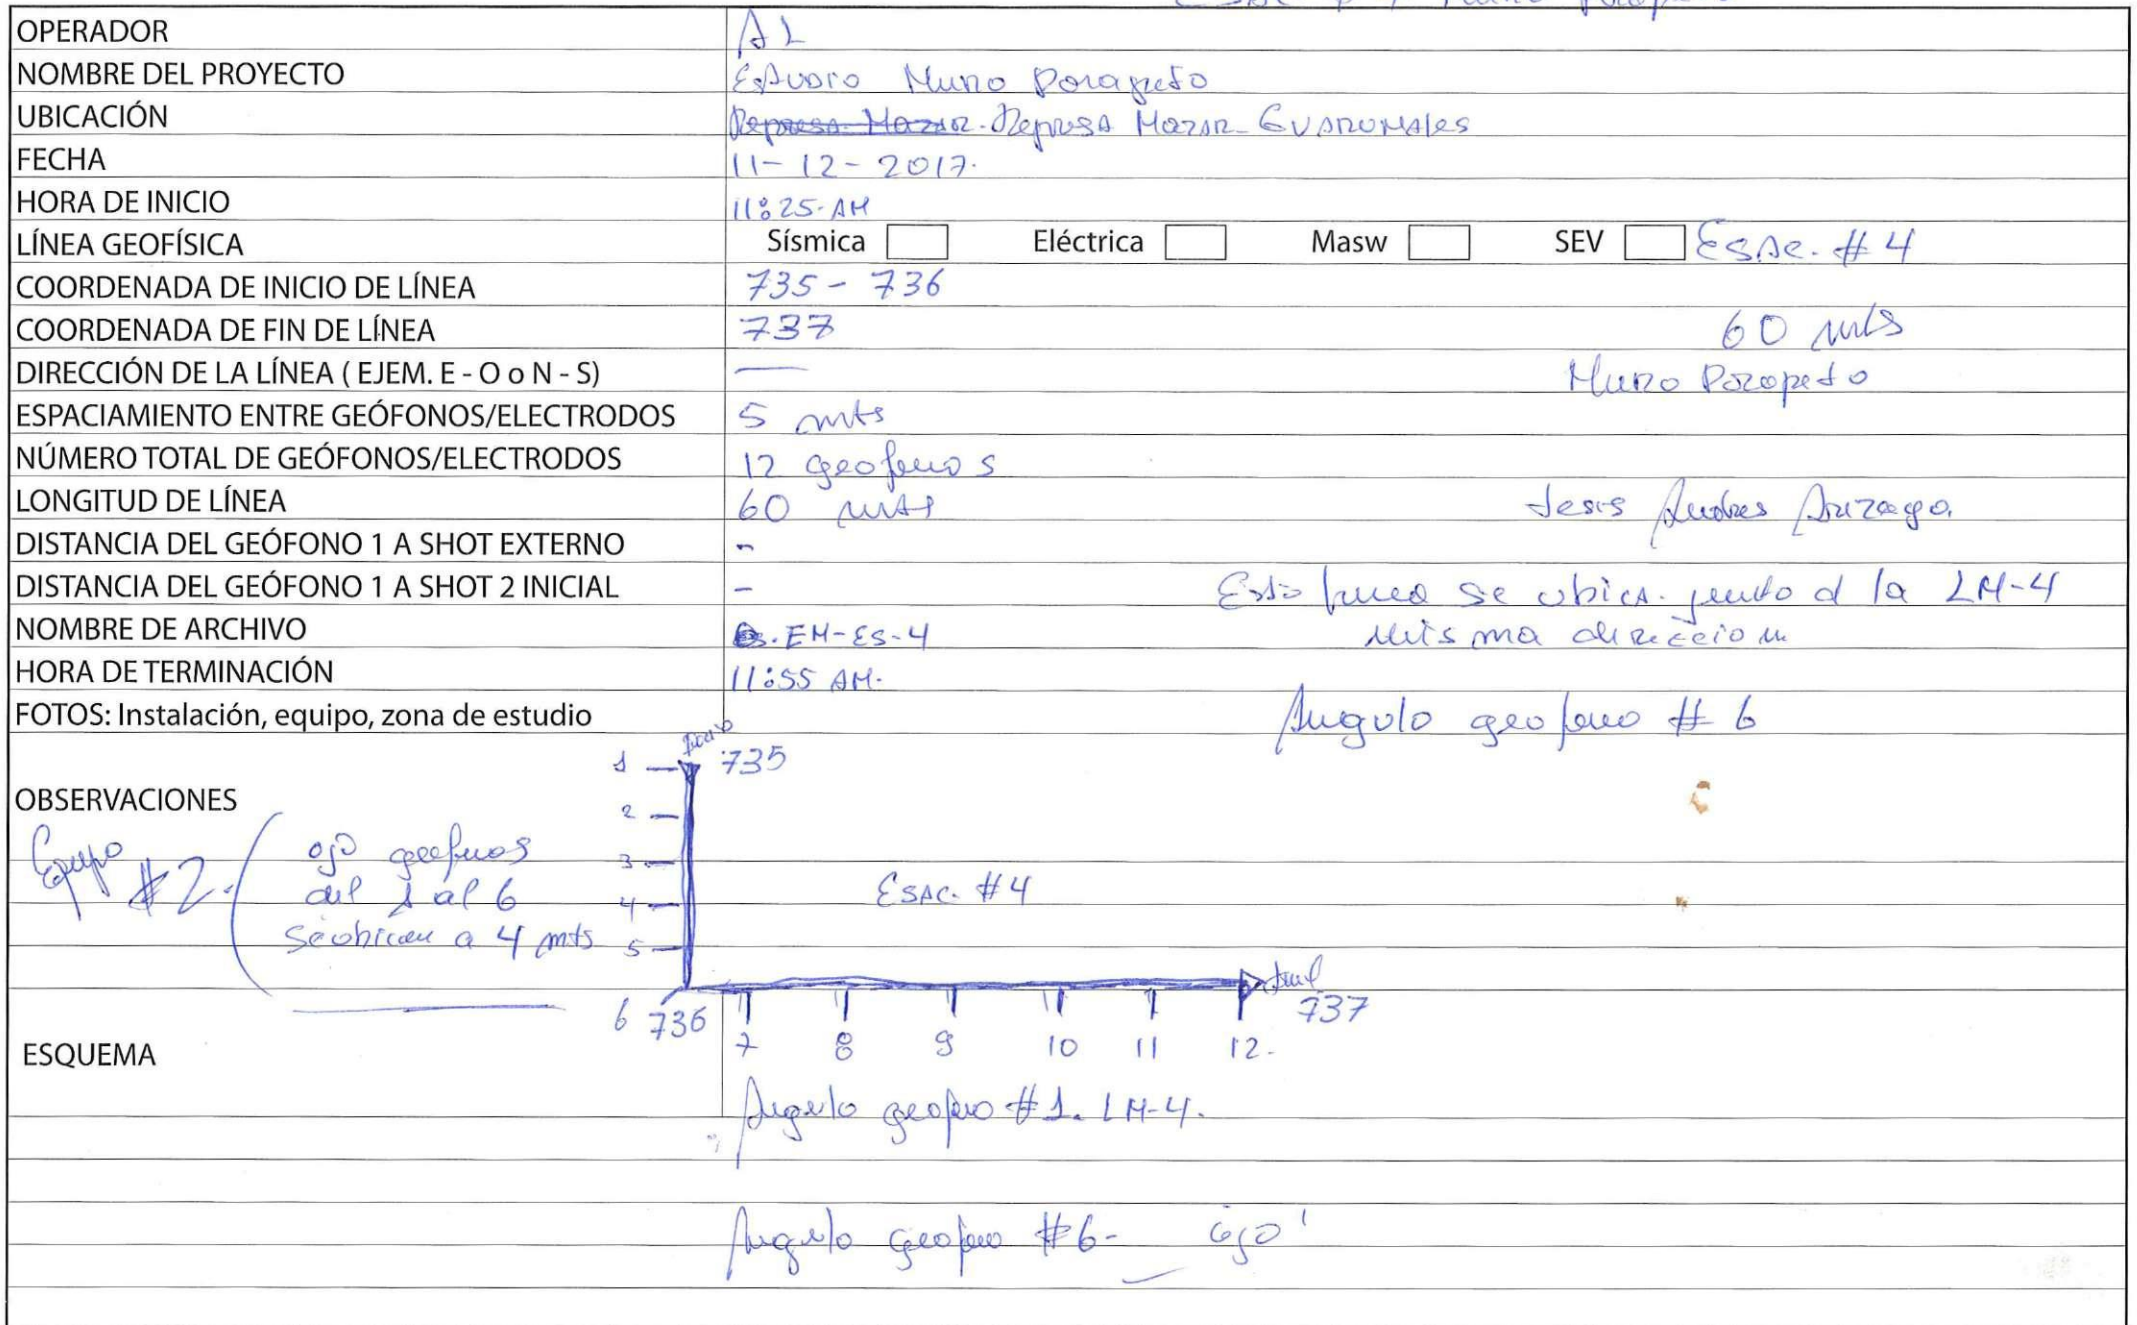 OPERADOR AL
NOMBRE DEL PROYECTO Estudio Muro Parapeto
UBICACIÓN Represa Mazar. Represa Mazar-Guarumales
FECHA 11-12-2017.
HORA DE INICIO 11:25 AM
LÍNEA GEOFÍSICA Sísmica Eléctrica Masw SEV ESAC. #4
COORDENADA DE INICIO DE LÍNEA 735 - 736
COORDENADA DE FIN DE LÍNEA 737 60 mts
DIRECCIÓN DE LA LÍNEA ( EJEM. E - O o N - S) — Muro Parapeto
ESPACIAMIENTO ENTRE GEÓFONOS/ELECTRODOS 5 mts
NÚMERO TOTAL DE GEÓFONOS/ELECTRODOS 12 geofonos
LONGITUD DE LÍNEA 60 mts Andres
DISTANCIA DEL GEÓFONO 1 A SHOT EXTERNO -
DISTANCIA DEL GEÓFONO 1 A SHOT 2 INICIAL - Esta linea se ubica junto a la LM-4
NOMBRE DE ARCHIVO EM-ES-4 misma direccion
HORA DE TERMINACIÓN 11:55 AM.
FOTOS: Instalación, equipo, zona de estudio Angulo geofono #6
1 735
OBSERVACIONES
2
Equipo #2. ojo geofonos
3
del 1 al 6
4 ESAC. #4
se ubican a 4 mts
5
final
6 736 737
7 8 9 10 11 12.
ESQUEMA
Angulo geofono #1. LM-4.
Angulo geofono #6- ojo